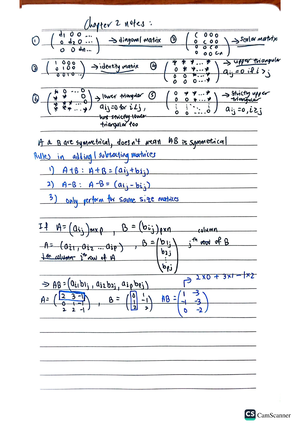 Chapter 2 notes :
① ( d1 0 0 ... 0 d2 0 ... ) → diagonal matrix ② ( c 0 0 0 0 c 0 0 0 0 c 0 0 0 0 c ) → scalar matrix
③ ( 1 0 0 0 0 1 0 0 0 0 1 0 ) → identity matrix ④ → upper triangular aij = 0 if i > j
→ lower triangular aij = 0 for i < j, → strictly upper triangular aij = 0, i ≥ j
has strictly lower triangular too
A & B are symmetrical, doesn't mean AB is symmetrical
Rules in adding / subtracting matrices
1) A+B : A+B = (aij + bij)
2) A-B : A-B = (aij - bij)
3) only perform for same size matrices
If A = (aij)m×p , B = (bij)p×n
column
A = (ai1, ai2 ... aip) , B = ( b1j b2j ⋮ bpj ) jth of B
row of A
⇒ AB = (ai1b1j, ai2b2j, aipbpj)
2×0 + 3×1 - 1×2
A = ( 2 3 -1 0 1 -1 2 2 -1 ) , B = ( 0 1 1 -1 2 2 ) AB = ( 1 -3 -1 -3 0 -2 )
CS CamScanner